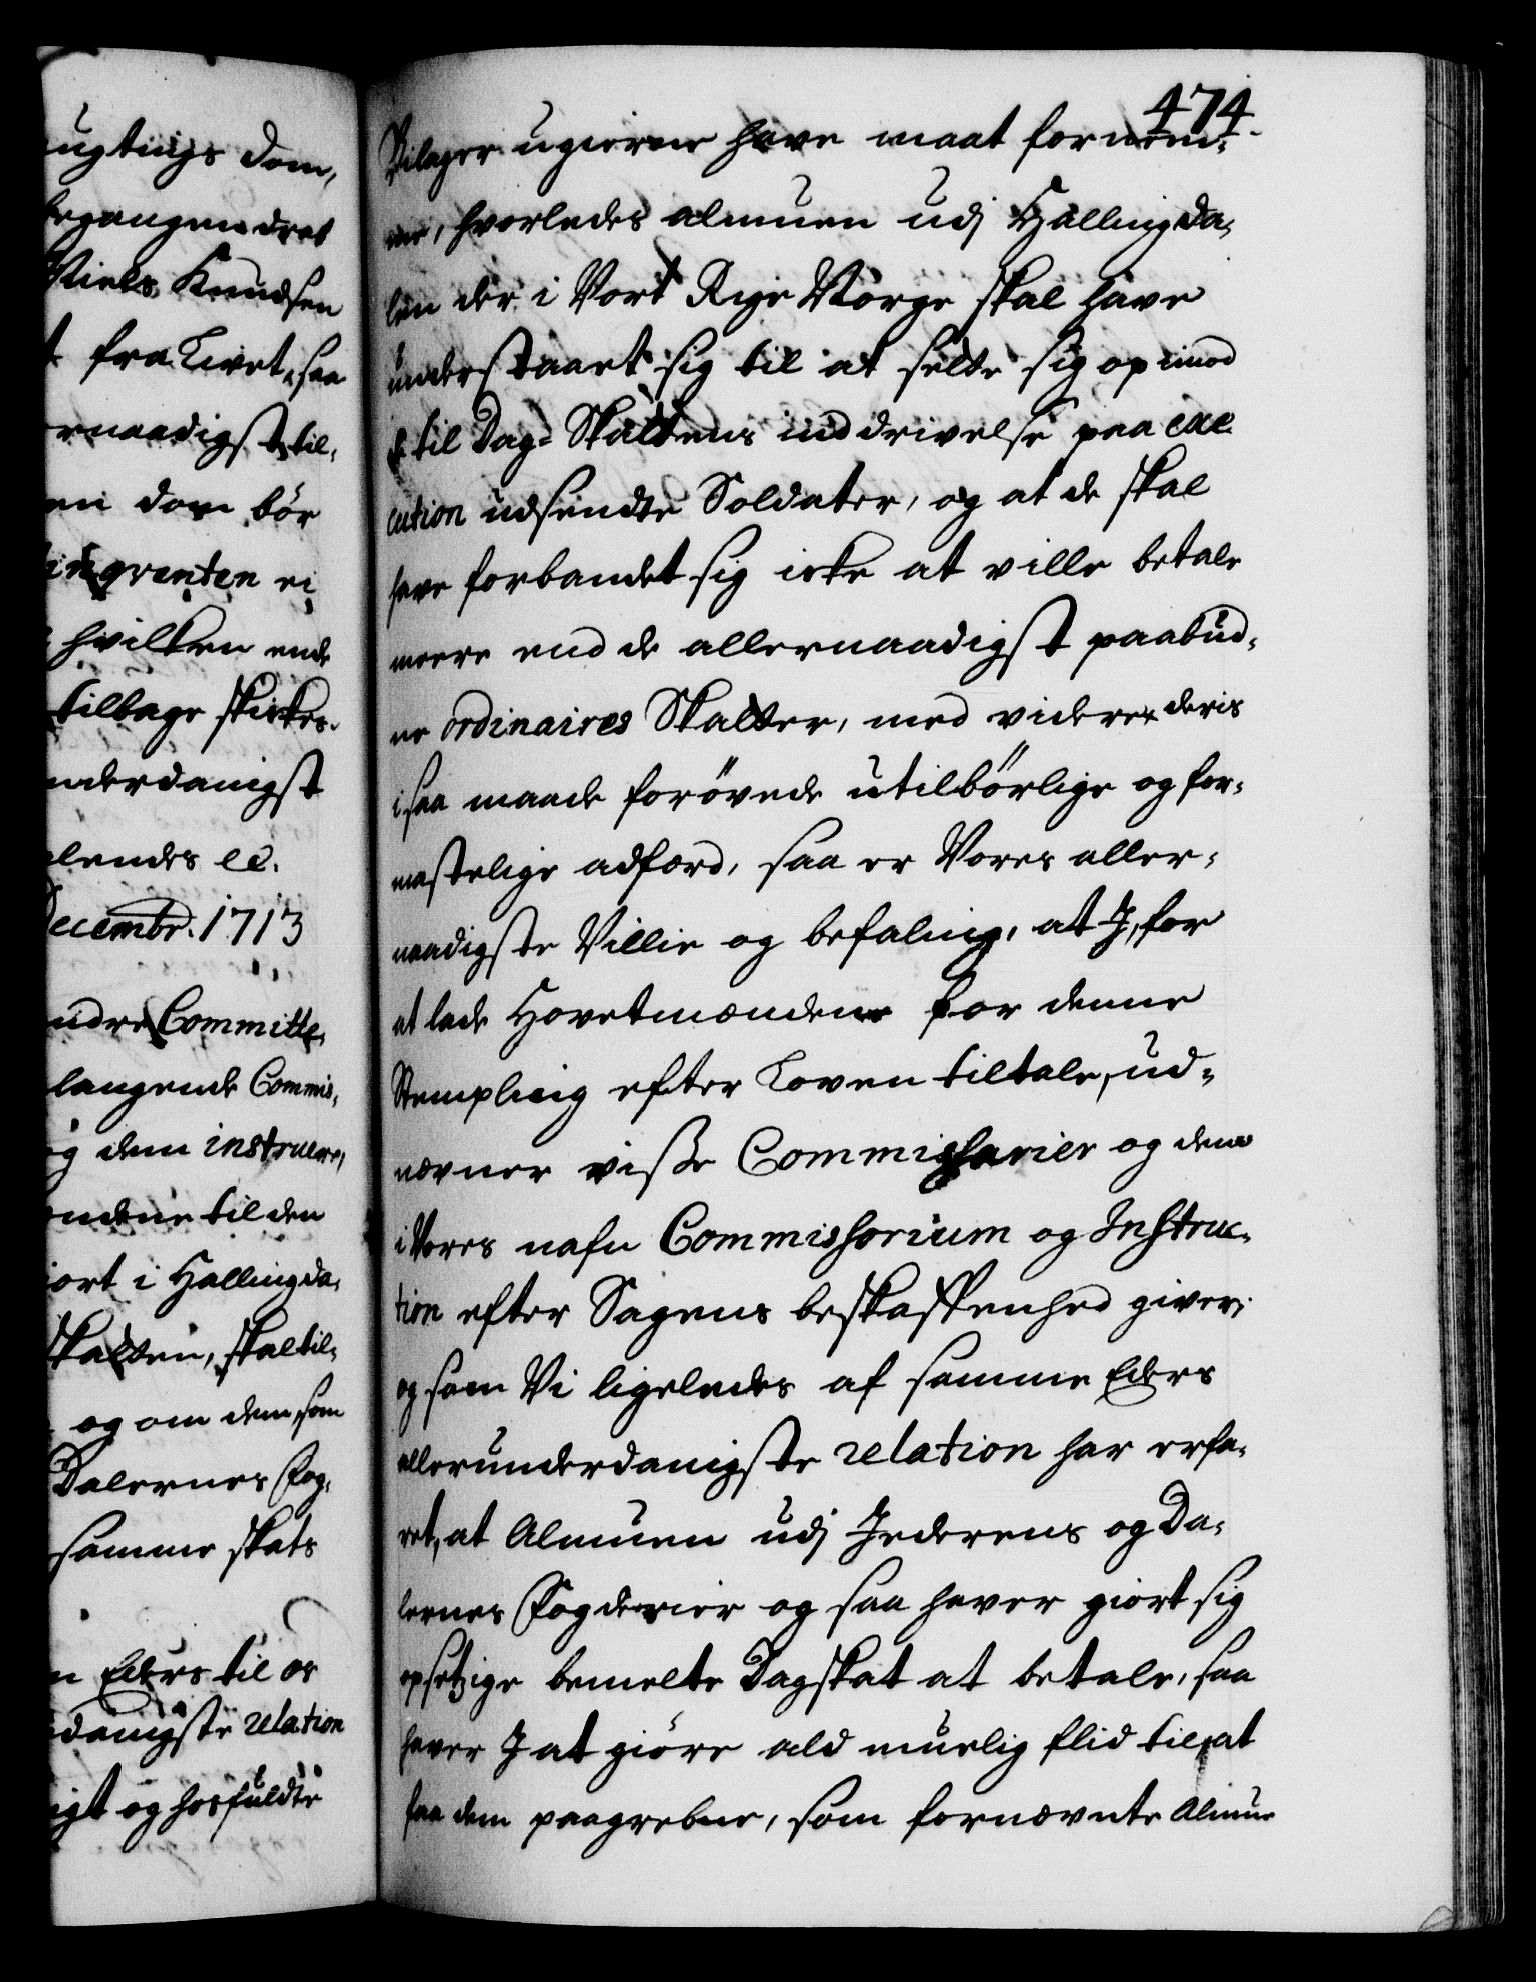 ugtings dom,
begangen dret
Niels Knudsen
t fra Livet, saa
ernaadigst til-
en dom bør
inqventen ej
hvilken ende
tilbage skickes.
nderdanigst
lendes ec.
Decembr. 1713
ndre Committe-
langende Commis-
og dem instruere,
ndene til den
iort i Hallingda-
Skatten, skal til-
og om dem, som
Dalernes Fog-
samme skats
n Eders til os
danigste relation
igt og hosfuldte
474.
Bilager ugierne have maat fornem-
me, hvorledes almuen udj Hallingda-
len der i Vort Rige Norge skal have
understaaet sig til at sette sig op imod
de til Dag-Skattens inddrivelse paa exe-
cution udsendte Soldater, og at de skal
have forbandet sig icke at ville betale
meere end de allernaadigst paabud-
ne ordinaires Skatter, med videre deris
i saa maade forøvede utilbørlige og for-
mastelige adfærd, saa er Vores aller-
naadigste Villie og befaling, at J, for
at lade Hovetmændene for denne
Stempling efter Loven tiltale, ud-
nævner visse Commissarier og dem
i Vores nafn Commissorium og Instruc-
tion efter Sagens beskaffenhed giver,
og som Vi ligeledes af samme Eders
allerunderdanigste relation har erfa-
ret, at Almuen udj Jederens og Da-
lernes Fogderier og saa haver giort sig
opsetzige bemelte Dagskat at betale, saa
haver J at giøre ald muelig flid til at
faa dem paagrebne, som fornævnte Almue